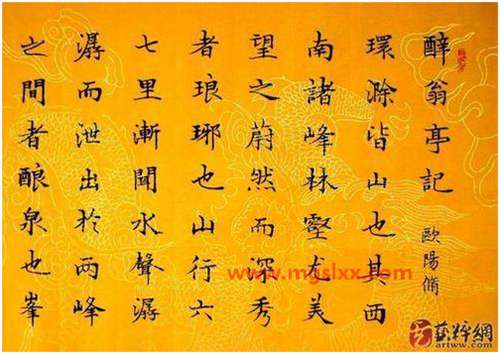 醉翁亭記 歐陽脩
環滁皆山也其西
南諸峰林壑尤美
望之蔚然而深秀
者琅琊也山行六
七里漸聞水聲潺
潺而泄出於兩峰
之間者酿泉也峯
www.mgslxx.com
藝粹網
artww.com